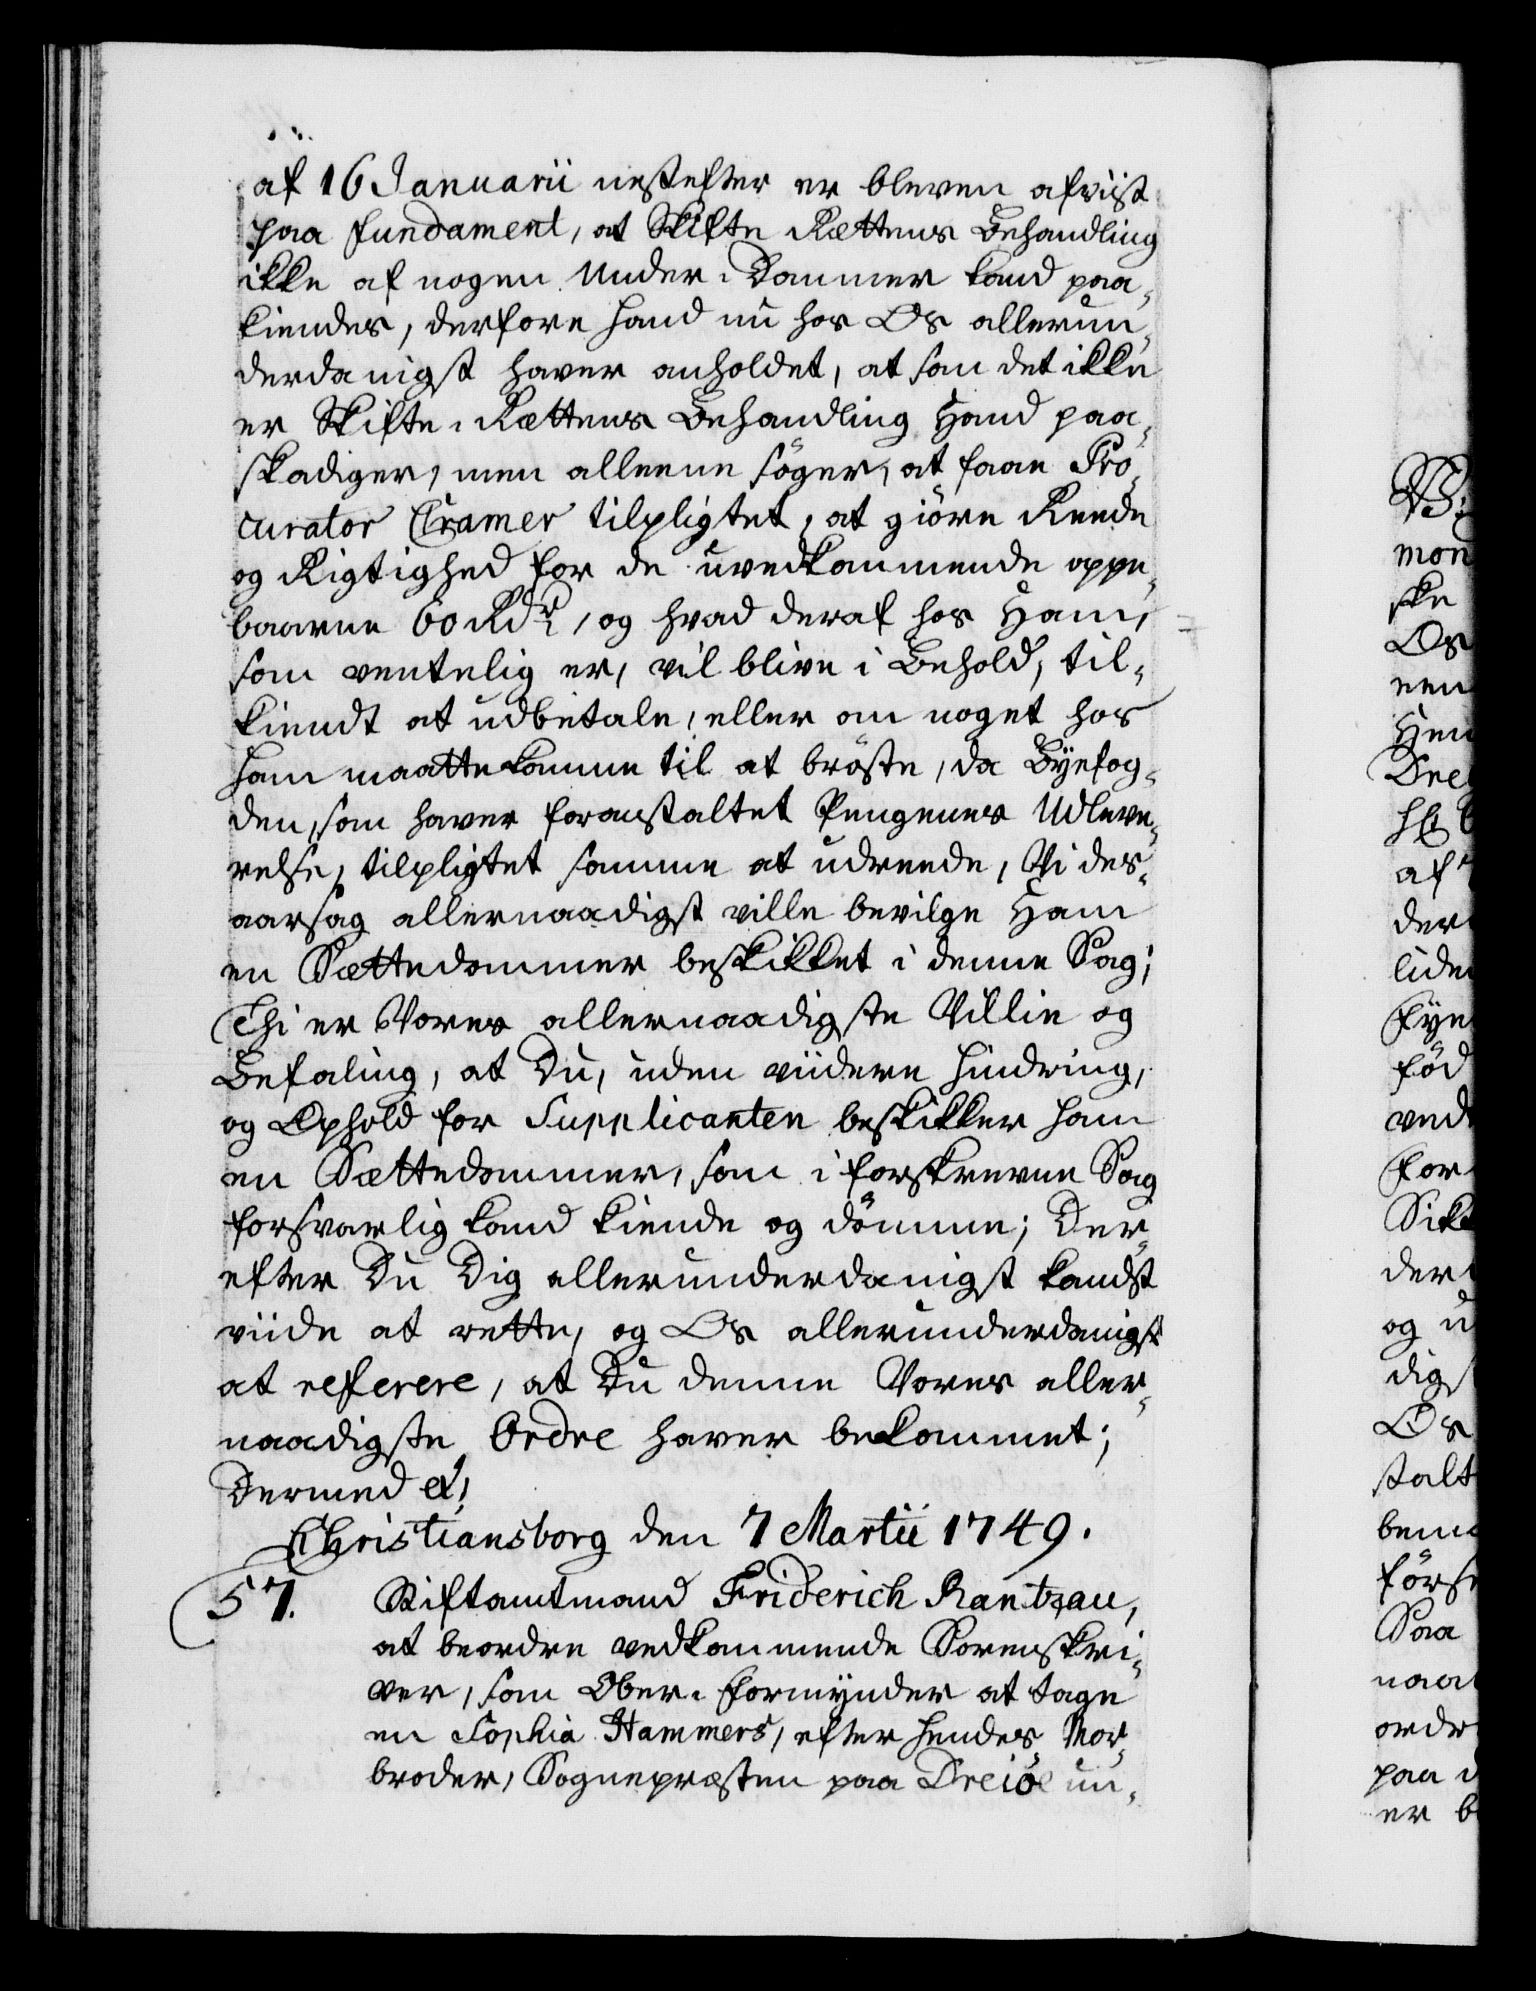 af 16 Januarii nestefter er bleven afviist
paa fundament, at Skifte Rettens Behandling
ikke af nogen Under-Dommer kand paa-
kiendes, derfore hand nu hos Os allerun-
derdanigst haver anholdet, at som det ikke
er Skifte-Rettens Behandling Hand paa-
skadiger, men alleene söger, at faae Pro-
curator Cramer tilpligtet, at giöre Reede
og Rigtighed for de uvedkommende oppe-
baarne 60 Rdr, og hvad deraf hos Ham,
som ventelig er, vil blive i Behold, til-
kiendt at udbetale, eller om noget hos
ham maatte komme til at bröste, da Byefog-
den, som haver foranstaltet Pengenes Udleve-
relse, tilpligtet samme at udreede, Vi des-
aarsag allernaadigst ville bevilge Ham
en Sættedommer beskikket i denne Sag;
Thi er Vores allernaadigste Villie og
Befaling, at Du, uden viidere hindring,
og Ophold for Supplicanten beskikker ham
en Sættedommer, som i forskrevne Sag
forsvarlig kand kiende og dömme; Der-
efter Du Dig allerunderdanigst kandst
viide at rette, og Os allerunderdanigst
at referere, at Du denne Vores aller-
naadigste Ordre haver bekommet;
Dermed etc
Christiansborg den 7 Martii 1749.
57. Stiftamtmand Friderich Rantzau,
at beordre vedkommende Sorenskri-
ver, som Ober-Formynder at tage
en Sophia Hammers, efter hendes Mor-
broder, Sognepræsten paa Dreiöe un-
mon
ske
Os
een
Hen
Drei
af
der
liden
Fyen
föd
ved
for
Sikk
der
og u
digst
Os
stalt
bem
förse
Saa
naad
ordr
paa
er b